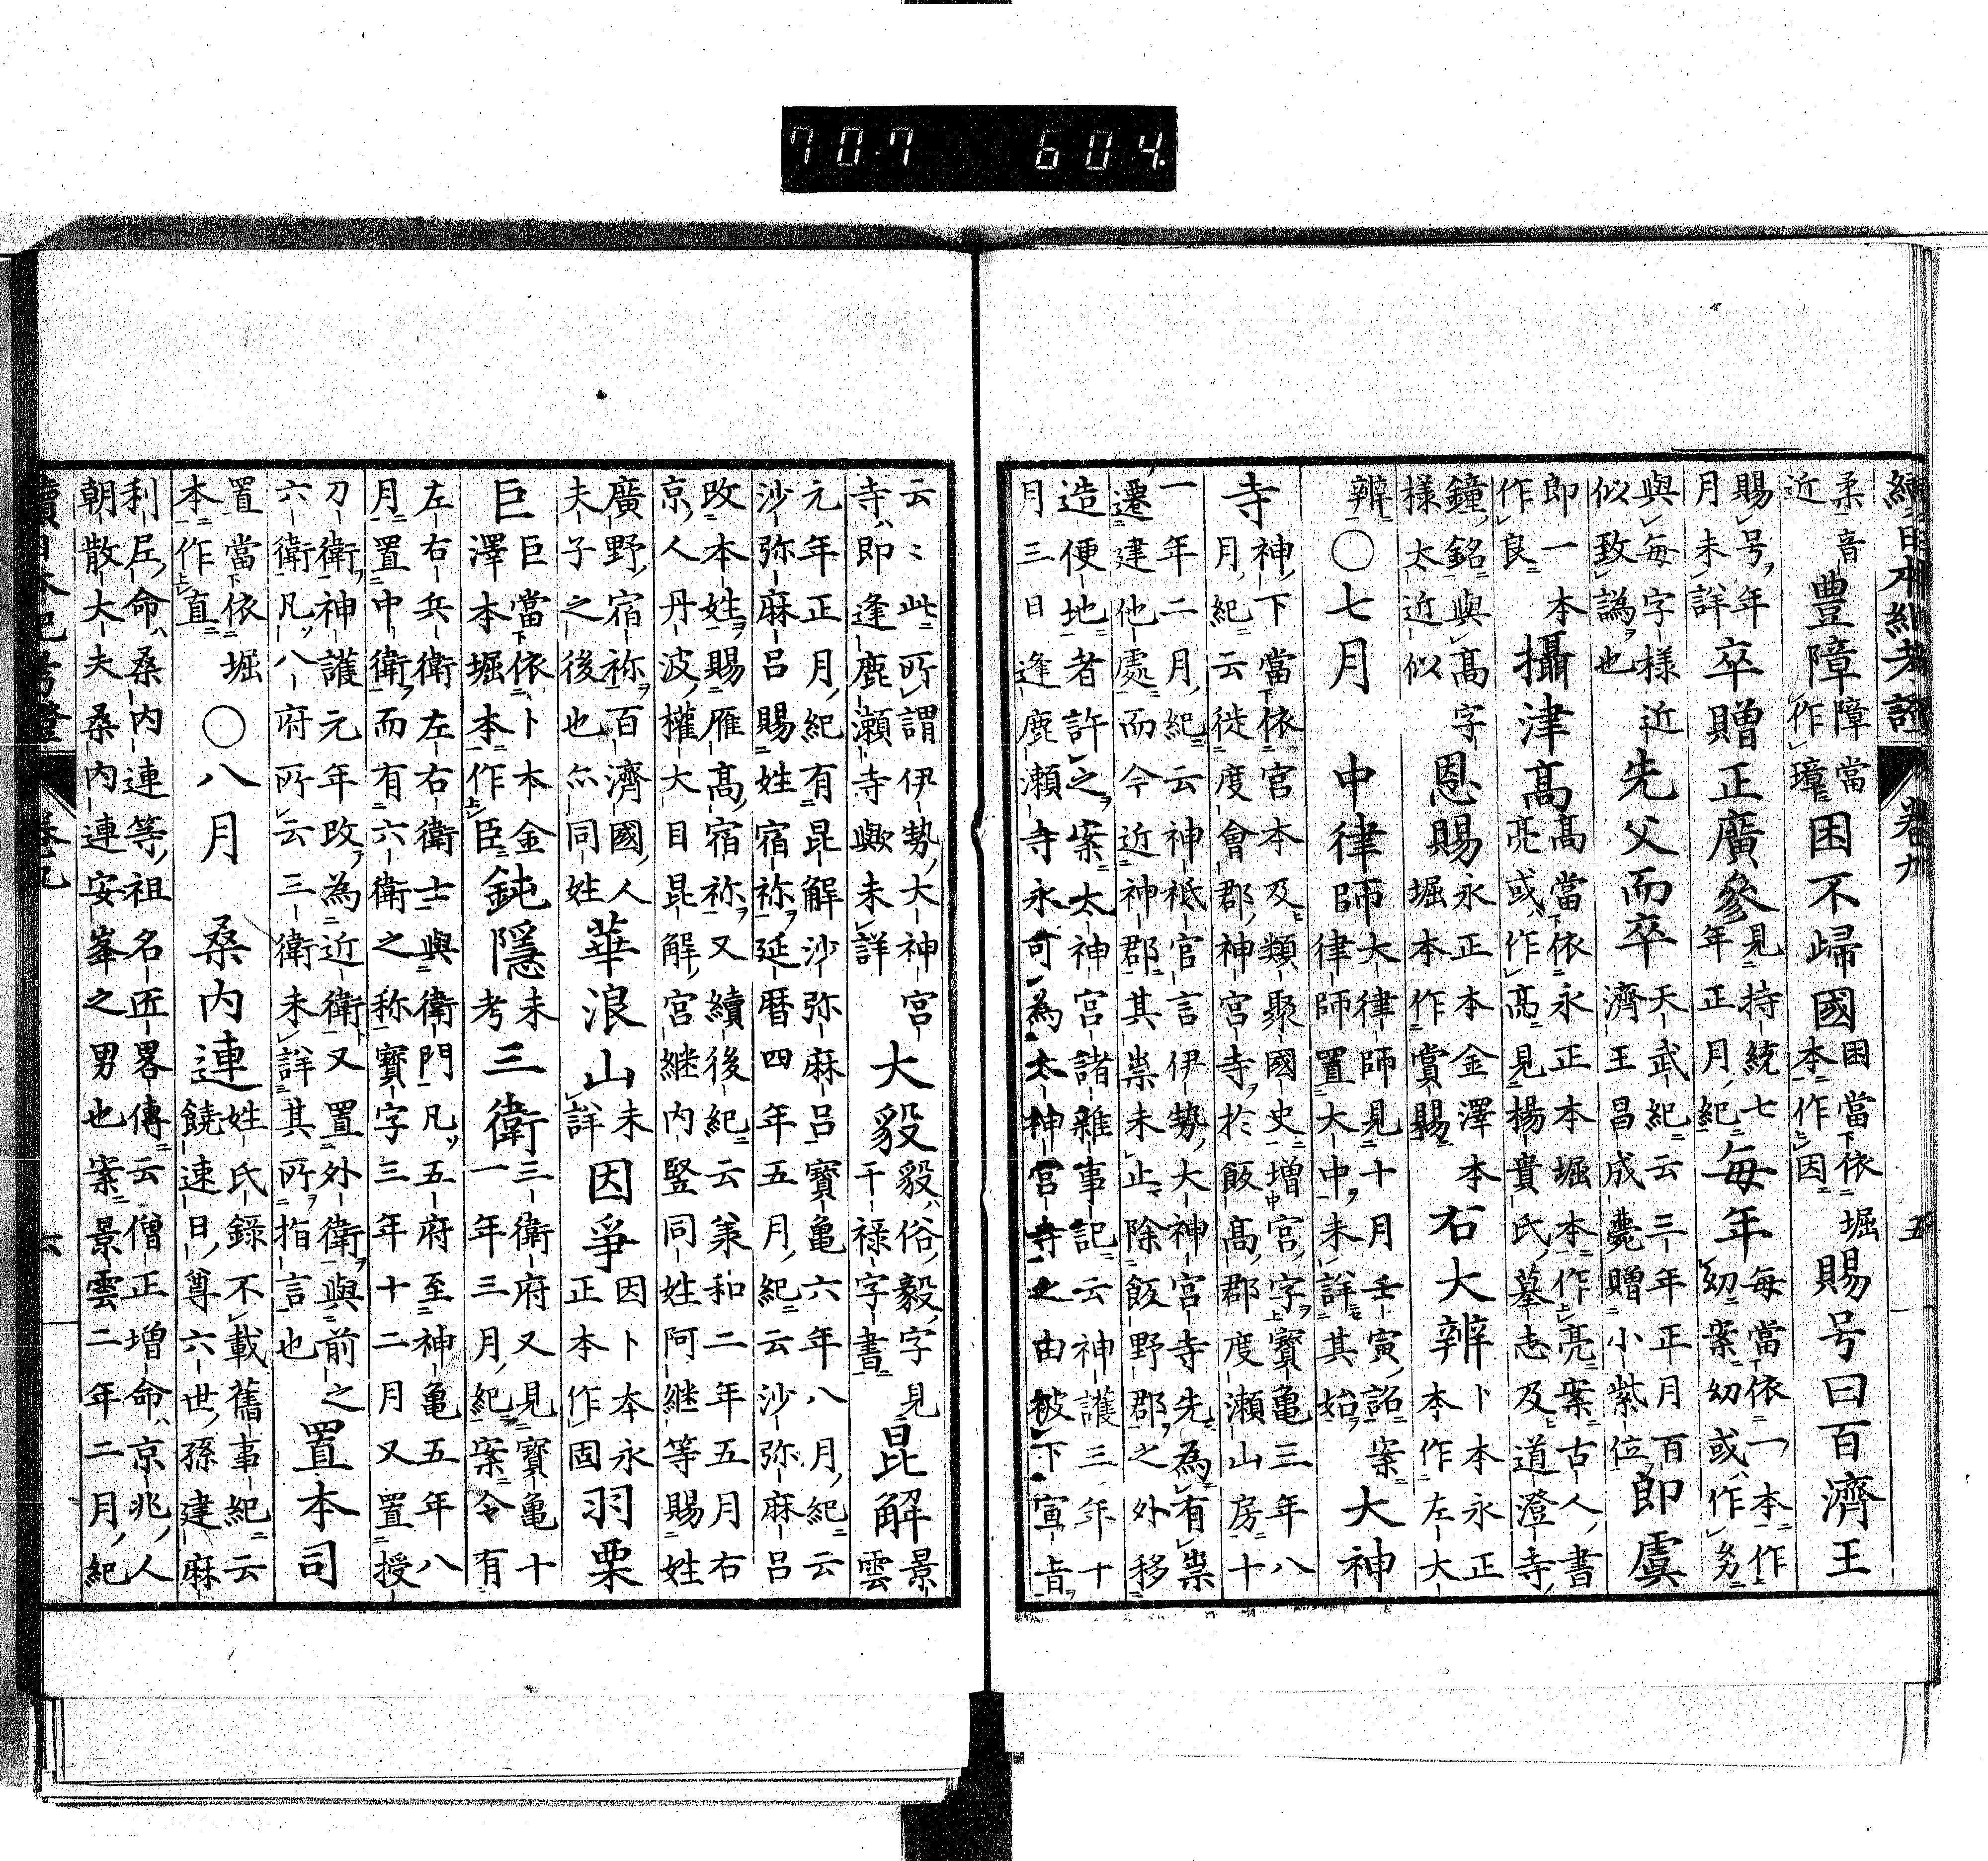 707 604.
續日本紀考證 卷九 五
柔音
近 豊障 障當
作璋 困不歸國 困當依堀
本作因 賜号曰百濟王
賜号年
月未詳 卒贈正廣參 見持統七
年正月紀 毎年 毎當依一本作
幼案幼或作㓜
與毎字様近
似致譌也 先父而卒 天武紀云三年正月百
濟王昌成薨贈小紫位 即虞
即一本
作良 攝津髙 髙當依永正本堀本作亮案古人書
亮或作髙見楊貴氏墓志及道澄寺
鐘銘與髙字
様太近似 恩賜 永正本金澤本
堀本作賞賜 右大辨 卜本永正
本作左大
辨 〇七月 中律師 大律師見十月壬寅詔案
律師置大中未詳其始 大神
寺 神下當依宮本及類聚國史増宮字寶亀三年八
月紀云徙度會郡神宮寺於飯髙郡度瀬山房十
一年二月紀云神祇官言伊勢大神宮寺先為有祟
遷建他處而今近神郡其祟未止除飯野郡之外移
造便地者許之案太神宮諸雜事記云神護三年十
月三日逢鹿瀬寺永可為太神宮寺之由被下宣旨
云〻此所謂伊勢大神宮
寺即逢鹿瀬寺歟未詳 大毅 毅俗毅字見
干祿字書 昆解 景
雲
元年正月紀有昆解沙弥麻呂寶亀六年八月紀云
沙弥麻呂賜姓宿祢延暦四年五月紀云沙弥麻呂
改本姓賜雁髙宿祢又續後紀云兼和二年五月右
京人丹波權大目昆解宮継内竪同姓阿継等賜姓
廣野宿祢百濟國人
夫子之後也亦同姓 華浪山 未
詳 因爭 因卜本永
正本作固 羽栗
巨 巨當依卜本金
澤本堀本作臣 鈍隠 未
考 三衛 三衛府又見寶亀十
一年三月紀案令有
左右兵衛左右衛士與衛門凡五府至神亀五年八
月置中衛而有六衛之称寶字三年十二月又置授
刀衛神護元年改為近衛又置外衛與前之
六衛凡八府所云三衛未詳其所指言也 置本司
置當依堀
本作直 〇八月 桑内連 姓氏錄不載舊事紀云
饒速日尊六世孫建麻
利𡰱命桑内連等祖名匠畧傳云僧正増命京兆人
朝散大夫桑内連安峯之男也案景雲二年二月紀
續日本紀考證 卷九 六